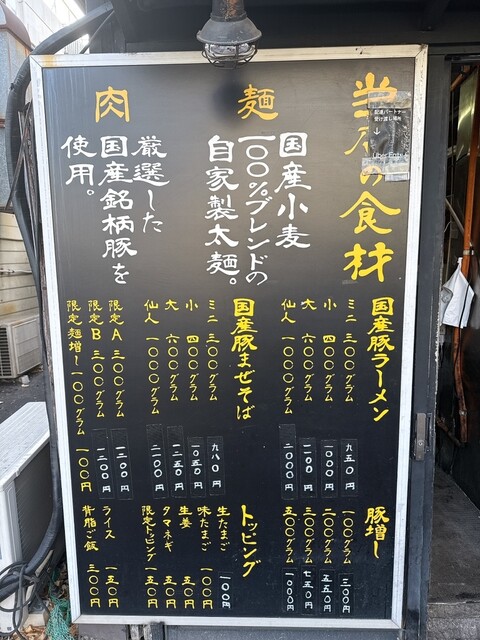 当店の食材
配達パートナー
受け渡し場所
↓
麺
国産小麦
一〇〇%ブレンドの
自家製太麺。
肉
厳選した
国産銘柄豚を
使用。
国産豚ラーメン
ミニ 三〇〇グラム 九五〇円
小 四〇〇グラム 一〇〇〇円
大 六〇〇グラム 一二〇〇円
仙人 一〇〇〇グラム 二〇〇〇円
国産豚まぜそば
ミニ 三〇〇グラム 九八〇円
小 四〇〇グラム 一〇五〇円
大 六〇〇グラム 一二五〇円
仙人 一〇〇〇グラム 二一〇〇円
限定A 三〇〇グラム 一二〇〇円
限定B 三〇〇グラム 一二〇〇円
限定麺増し 一〇〇グラム 一〇〇円
豚増し
一〇〇グラム 三〇〇円
二〇〇グラム 五五〇円
三〇〇グラム 七五〇円
五〇〇グラム 一〇〇〇円
トッピング
生たまご 一〇〇円
味たまご 一〇〇円
生姜 五〇円
タマネギ 五〇円
限定トッピング 一五〇円
ライス 一五〇円
背脂ご飯 三〇〇円